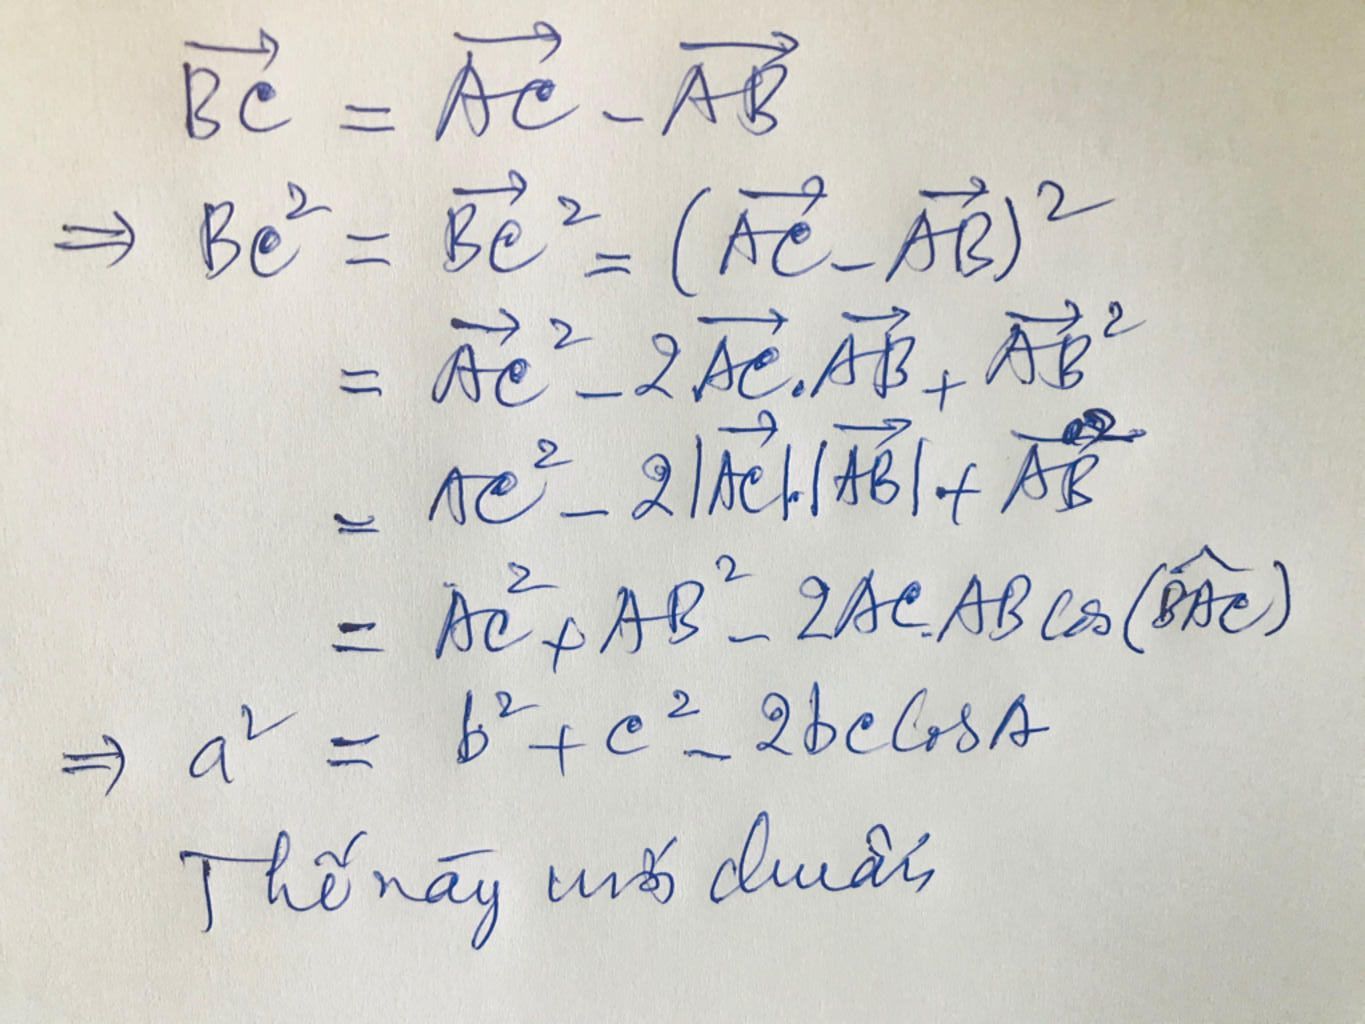 $\overrightarrow{BC} = \overrightarrow{AC} - \overrightarrow{AB}$
$\Rightarrow BC^2 = \overrightarrow{BC}^2 = (\overrightarrow{AC} - \overrightarrow{AB})^2$
$= \overrightarrow{AC}^2 - 2\overrightarrow{AC}.\overrightarrow{AB} + \overrightarrow{AB}^2$
$= AC^2 - 2|\overrightarrow{AC}|.|\overrightarrow{AB}| + \overrightarrow{AB}^2$
$= AC^2 + AB^2 - 2AC.AB \cos(\widehat{BAC})$
$\Rightarrow a^2 = b^2 + c^2 - 2bc \cos A$
Thế này mới chuẩn